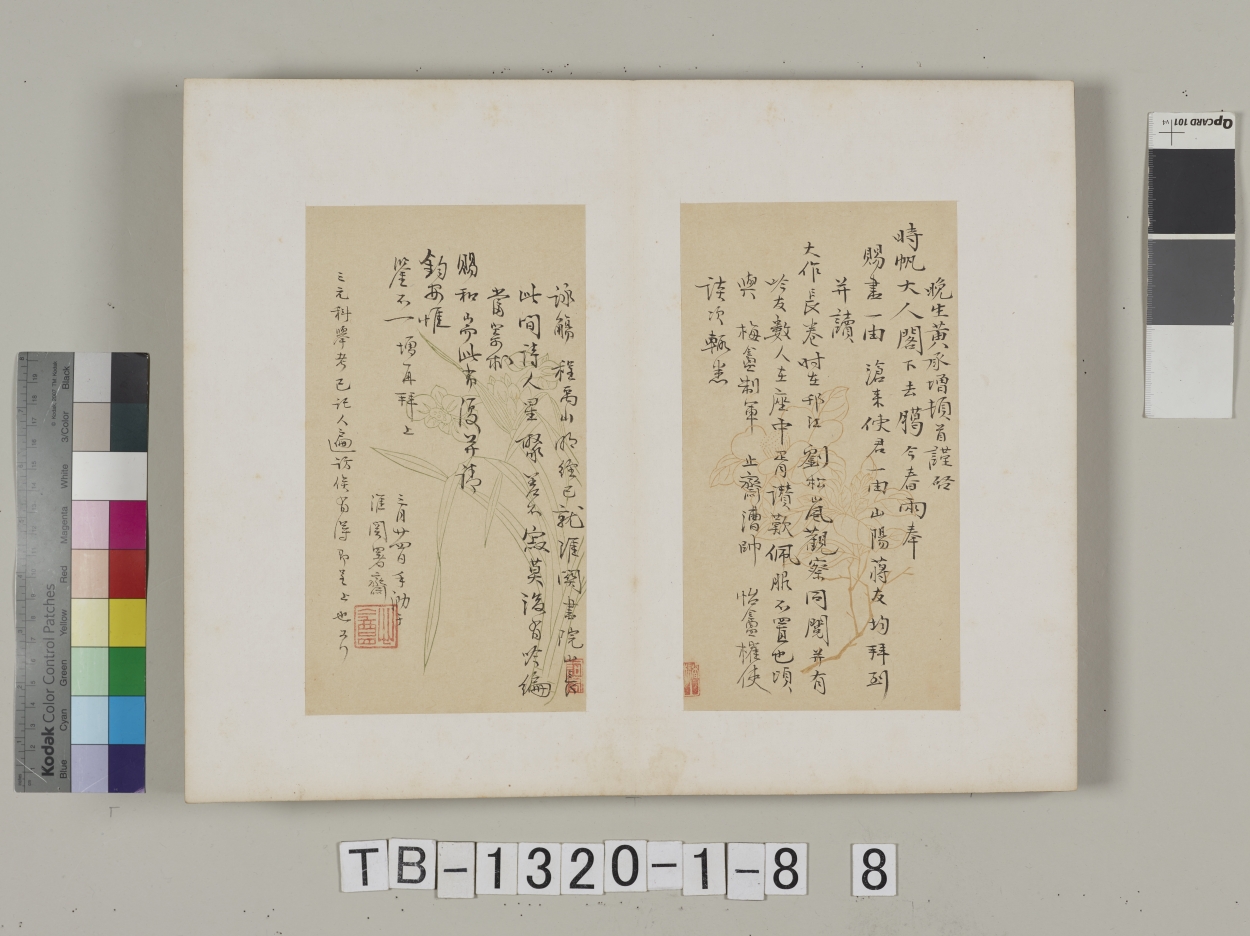 晚生黃承增頓首謹啓
時帆大人閣下去臘今春兩奉
賜書一由 滄来使君一由山陽蔣友均拜到
并讀
大作長卷时在邗江 劉松嵐觀察同閱并有
吟友數人在座中胥讃歎佩服不置也頃
與 梅盦制軍 止齋漕帥 怡盦榷使
談次輒
詠觴 程禹山明經已就淮關書院山長
此间詩人星聚差不寂莫後有吟編
當寄
賜和耑此肅復并請
鈞安惟
鑒不一 增再拜上
三月廿四日手泐
淮関署齋
三元科舉考已託人遍访俟有得即呈上也又行
Qp CARD 101
Kodak Color Control Patches
© Kodak, 2007, TM: Kodak
Blue Cyan Green Yellow Red Magenta White 3/Color Black
TB-1320-1-8 8